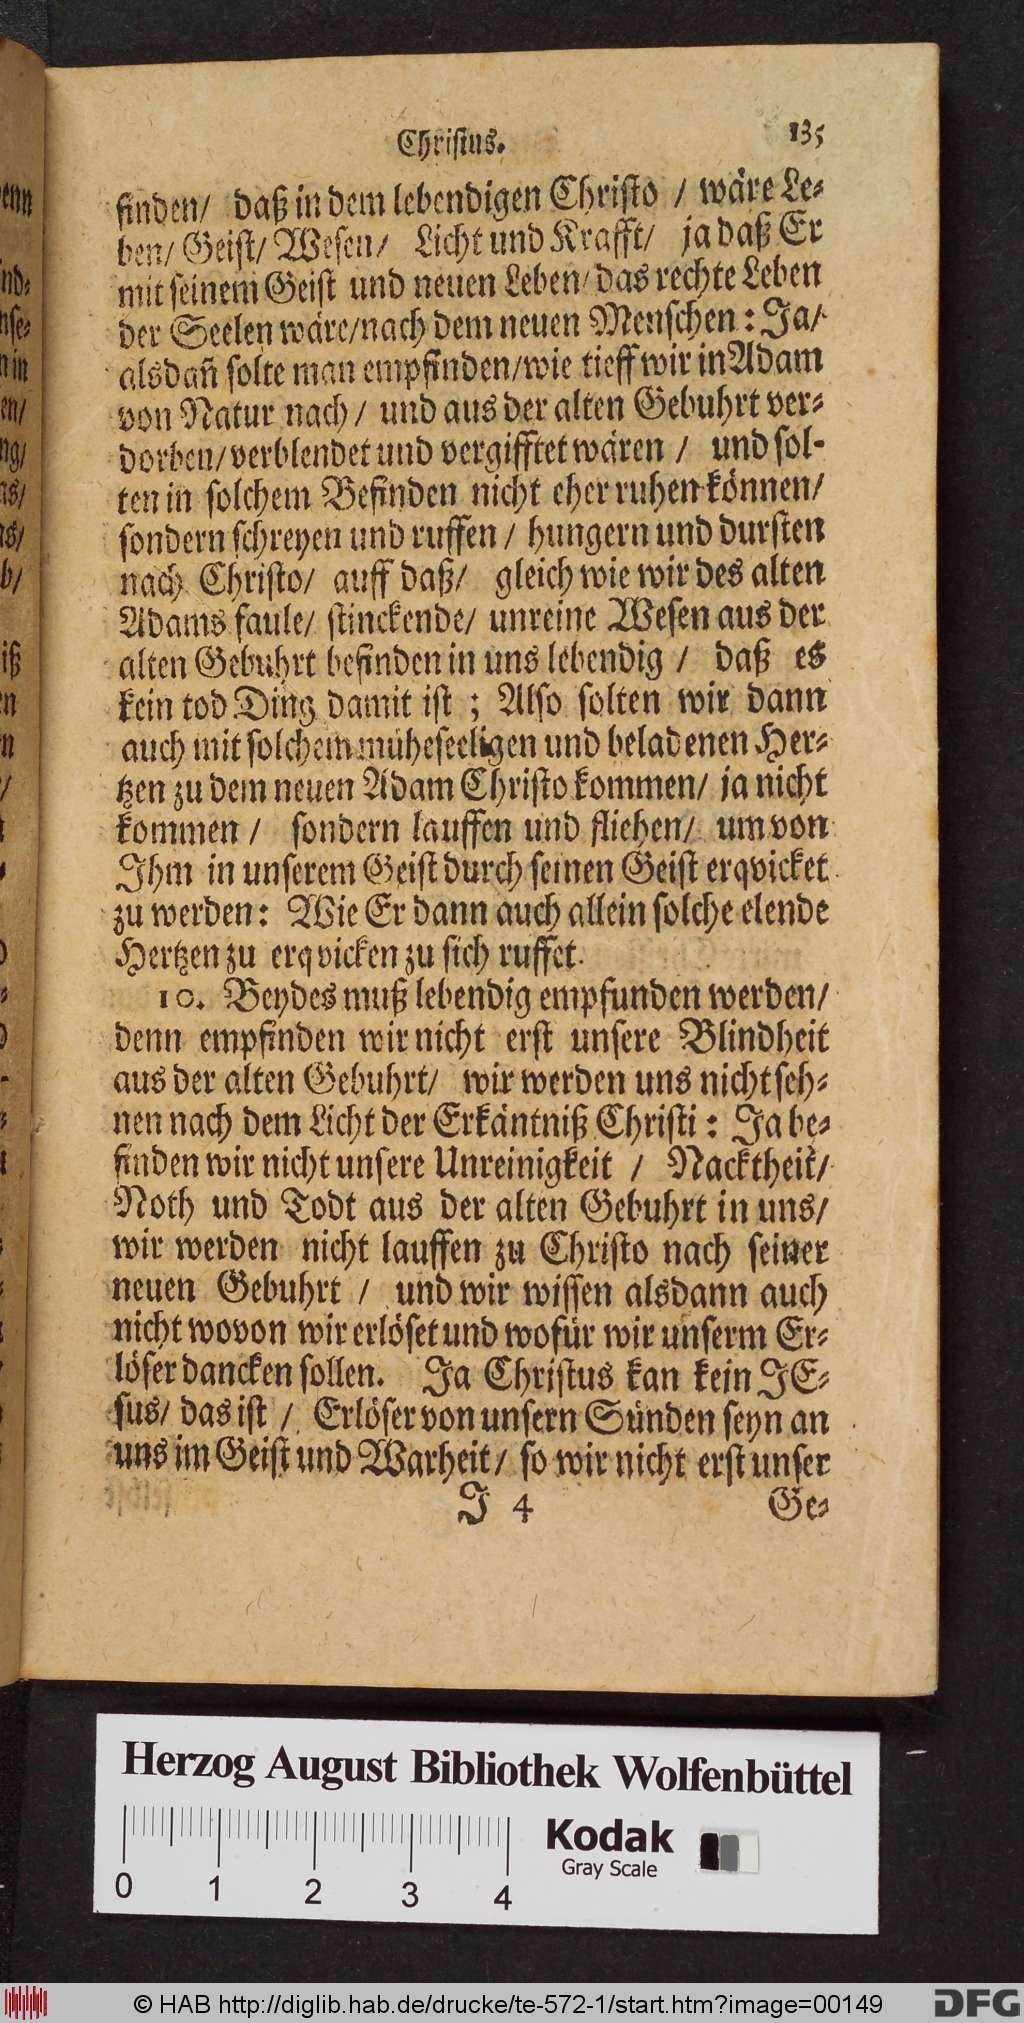 Christus. 135
finden/ daß in dem lebendigen Christo / wäre Le-
ben/ Geist/ Wesen/ Licht und Krafft/ ja daß Er
mit seinem Geist und neuen Leben/ das rechte Leben
der Seelen wäre/nach dem neuen Menschen: Ja/
alsdañ solte man empfinden/wie tieff wir in Adam
von Natur nach/ und aus der alten Gebuhrt ver-
dorben/verblendet und vergifftet wären / und sol-
ten in solchem Befinden nicht eher ruhen können/
sondern schreyen und ruffen / hungern und dursten
nach Christo/ auff daß/ gleich wie wir des alten
Adams faule/ stinckende/ unreine Wesen aus der
alten Gebuhrt befinden in uns lebendig / daß es
kein tod Ding damit ist ; Also solten wir dann
auch mit solchem müheseeligen und beladenen Her-
tzen zu dem neuen Adam Christo kommen/ ja nicht
kommen / sondern lauffen und fliehen/ um von
Ihm in unserem Geist durch seinen Geist erqvicket
zu werden: Wie Er dann auch allein solche elende
Hertzen zu erqvicken zu sich ruffet.
10. Beydes muß lebendig empfunden werden/
denn empfinden wir nicht erst unsere Blindheit
aus der alten Gebuhrt/ wir werden uns nicht seh-
nen nach dem Licht der Erkäntniß Christi: Ja be-
finden wir nicht unsere Unreinigkeit / Nacktheit/
Noth und Todt aus der alten Gebuhrt in uns/
wir werden nicht lauffen zu Christo nach seiner
neuen Gebuhrt / und wir wissen alsdann auch
nicht wovon wir erlöset und wofür wir unserm Er-
löser dancken sollen. Ja Christus kan kein JE-
sus/ das ist / Erlöser von unsern Sünden seyn an
uns im Geist und Warheit/ so wir nicht erst unser
J 4 Ge-
Herzog August Bibliothek Wolfenbüttel
0 1 2 3 4
Kodak
Gray Scale
© HAB http://diglib.hab.de/drucke/te-572-1/start.htm?image=00149
DFG